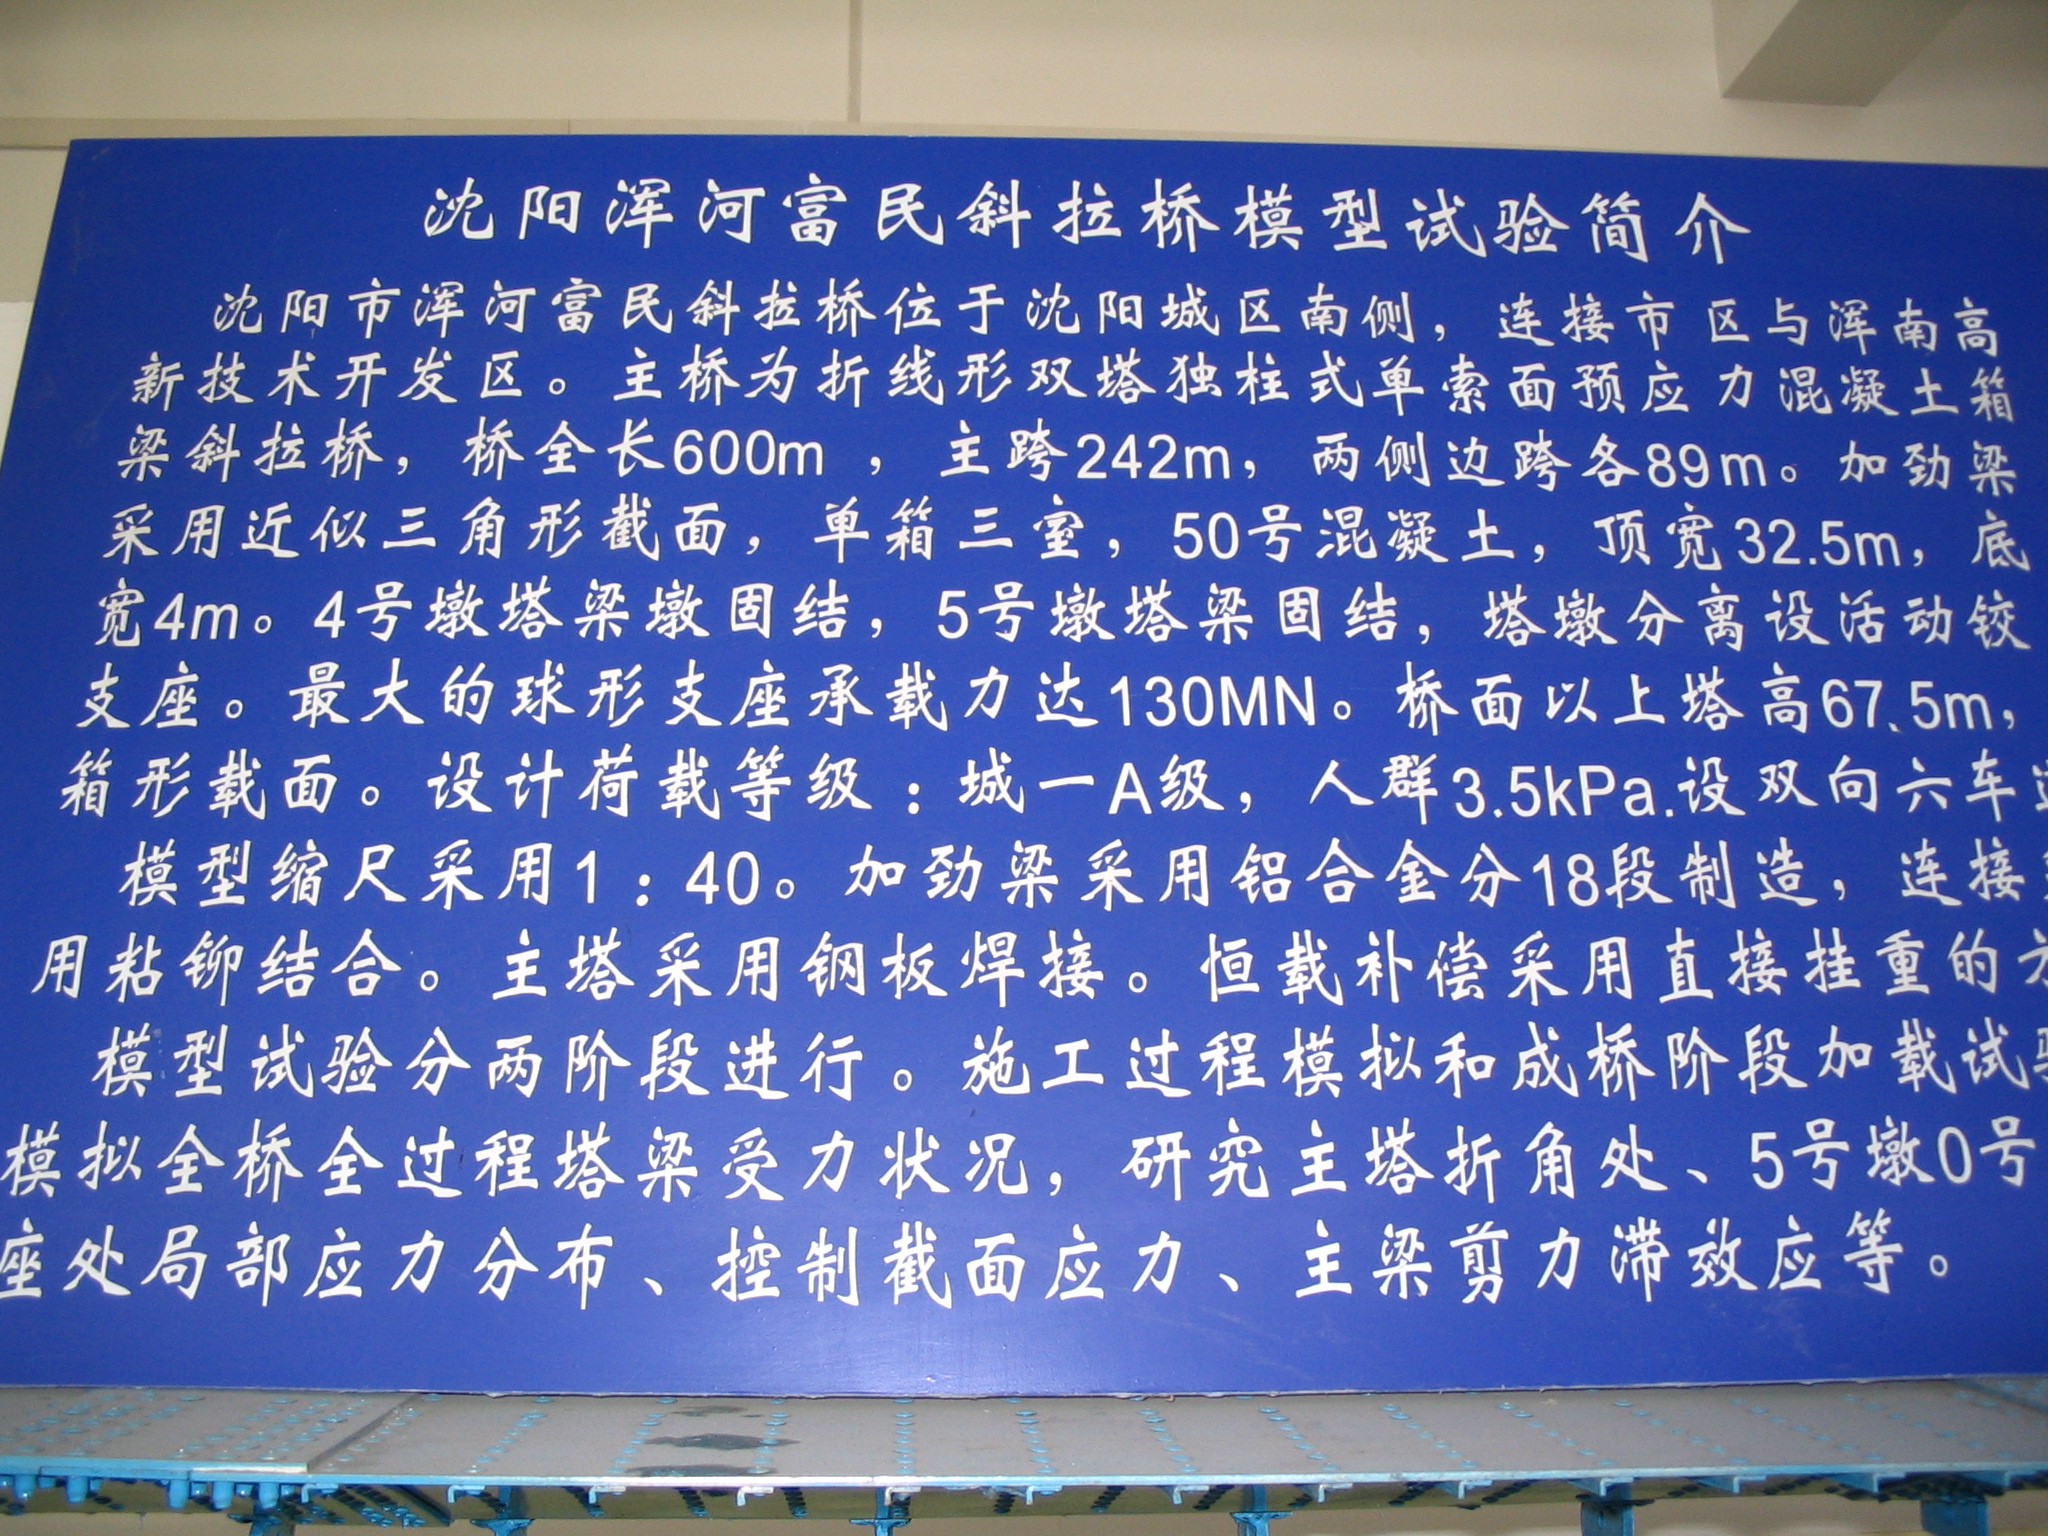 沈阳浑河富民斜拉桥模型试验简介
沈阳市浑河富民斜拉桥位于沈阳城区南侧，连接市区与浑南高
新技术开发区。主桥为折线形双塔独柱式单索面预应力混凝土箱
梁斜拉桥，桥全长600m，主跨242m，两侧边跨各89m。加劲梁
采用近似三角形截面，单箱三室，50号混凝土，顶宽32.5m，底
宽4m。4号墩塔梁墩固结，5号墩塔梁固结，塔墩分离设活动铰
支座。最大的球形支座承载力达130MN。桥面以上塔高67.5m，
箱形截面。设计荷载等级：城一A级，人群3.5kPa.设双向六车
模型缩尺采用1：40。加劲梁采用铝合金分18段制造，连接
用粘铆结合。主塔采用钢板焊接。恒载补偿采用直接挂重的
模型试验分两阶段进行。施工过程模拟和成桥阶段加载试
模拟全桥全过程塔梁受力状况，研究主塔折角处、5号墩0号
座处局部应力分布、控制截面应力、主梁剪力滞效应等。